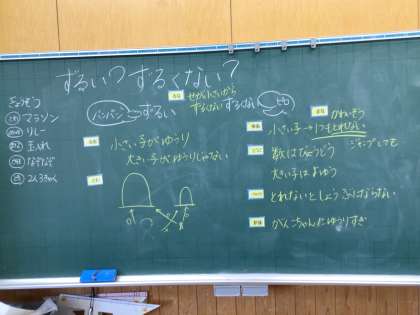 ずるい？ ずるくない？
きょうそう
マラソン
リレー
玉入れ
なぞなぞ
2人3きゃく
バンバン
ずるい
せが小さいから
ずるくない
ずるくない
小さい子がゆうり
大きい子がゆうりじゃない
かわいそう
小さい子→1つもとれない
ジャンプしても
数はびょうどう
大きい子はよゆう
とれないとしょうぶにならない
がんちゃんにゆうりすぎ